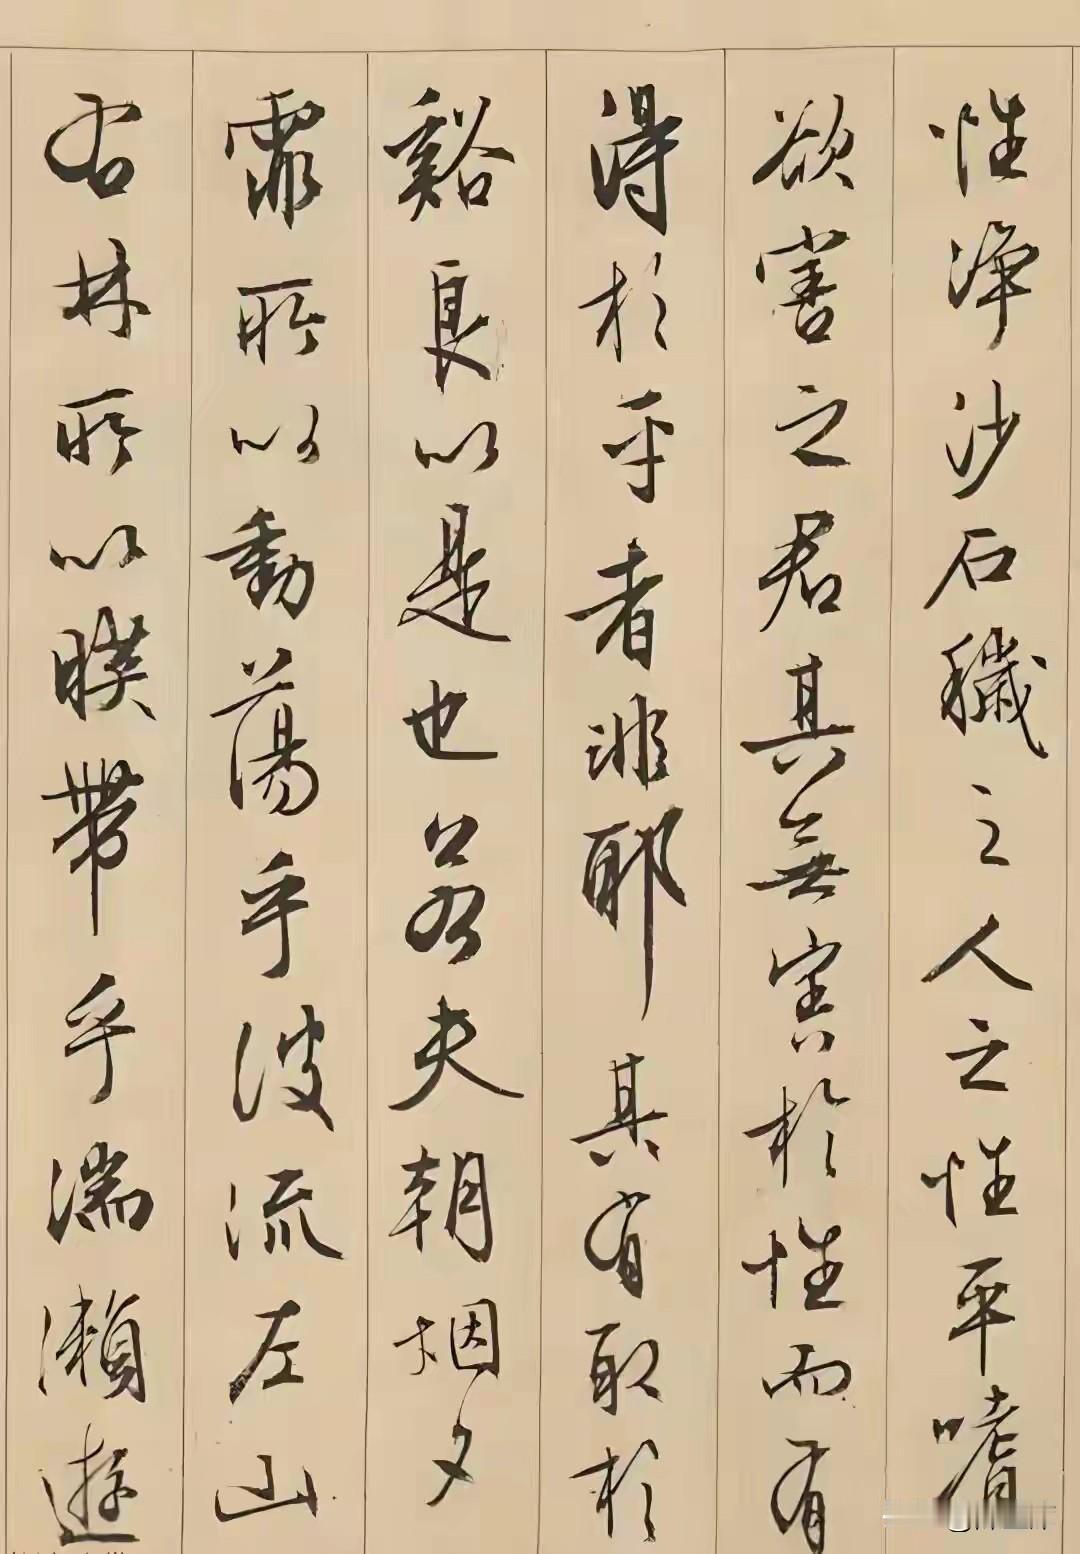 性淨沙石穢之人之性平嗜
欲害之君其無害於性而有
得於乎者非耶其有取於
谿良以是也若夫朝烟夕
霏所以動蕩乎波流左山
右林所以映帶乎湍瀨遊